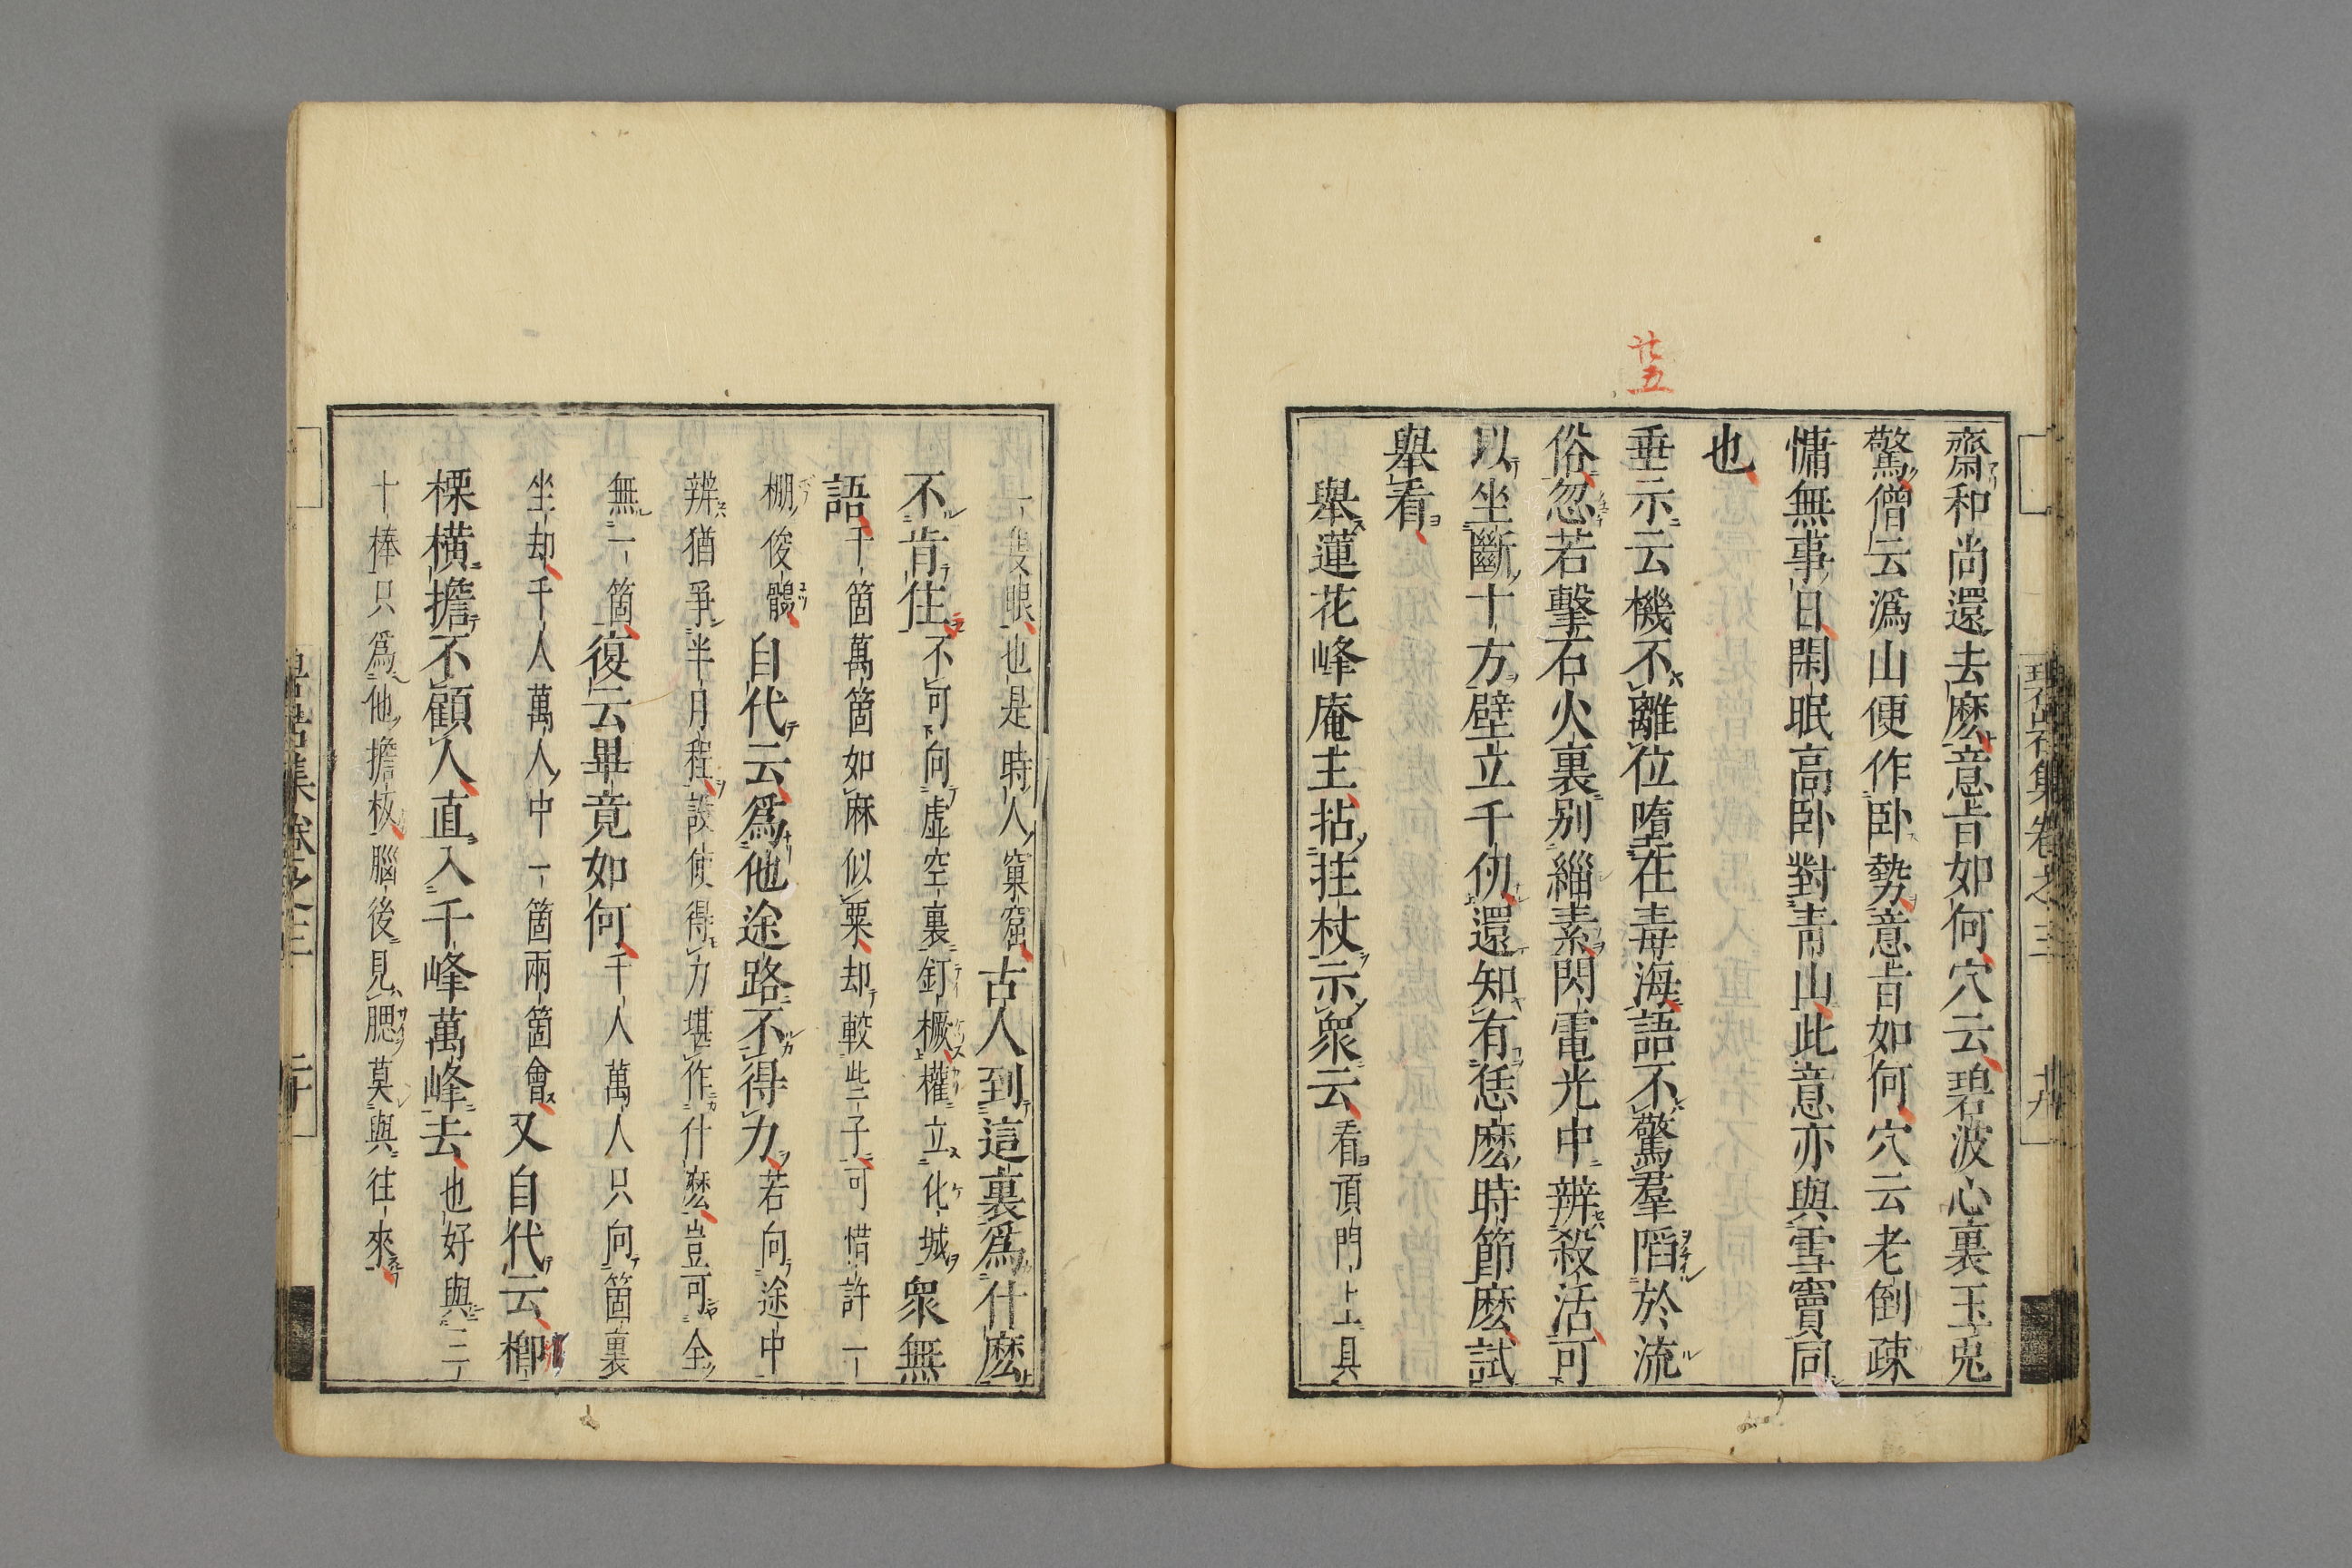 廿五
齋和尚還去麽意旨如何穴云碧波心裏玉兎
驚僧云潙山便作臥勢意旨如何穴云老倒疎
慵無事日閑眠高臥對青山此意亦與雪竇同
也
垂示云機不離位墮在毒海語不驚羣陷於流
俗忽若擊石火裏別緇素閃電光中辨殺活可
以坐斷十方壁立千仞還知有恁麽時節麽試
舉看
舉蓮花峰庵主拈拄杖示衆云看頂門上具
一隻眼也是時人窠窟古人到這裏爲什麽
不肯住不可向虛空裏釘橛權立化城衆無
語千箇萬箇如麻似粟却較些子可惜許一
棚俊鶻自代云爲他途路不得力若向途中
辨猶爭半月程設使得力堪作什麽豈可全
無一箇復云畢竟如何千人萬人只向箇裏
坐却千人萬人中一箇兩箇會又自代云楖
樮橫擔不顧人直入千峰萬峰去也好與三
十棒只爲他擔板腦後見腮莫與往來
碧岩集卷之三
廿九